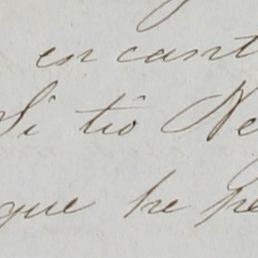 en cant
Si tio Ne
que he pe